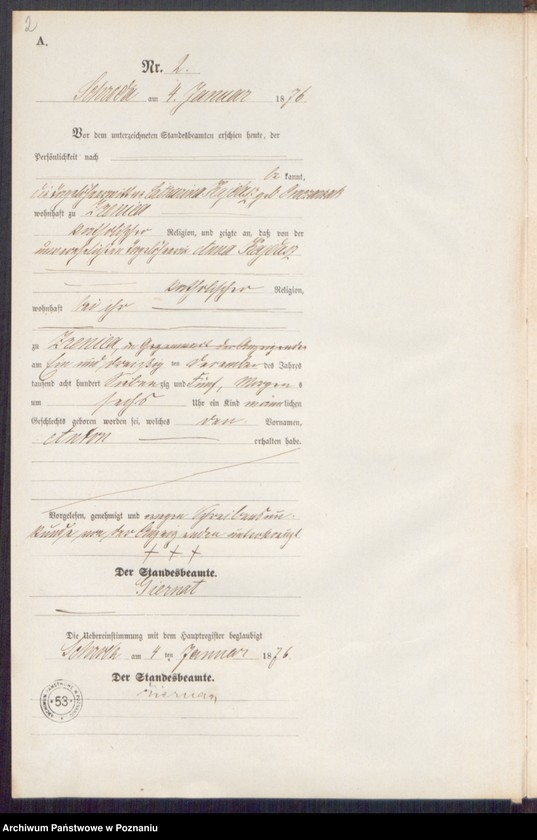 2
A.
Nr. 2.
Schroda am 4. Januar 1876.
Vor dem unterzeichneten Standesbeamten erschien heute, der
Persönlichkeit nach
be kannt,
die Tagelöhnerwittwe Catharina geb.
wohnhaft zu
katholischer Religion, und zeigte an, daß von der
unverehelichten Tagelöhnerin Anna
katholischer Religion,
wohnhaft bei ihr
zu in Gegenwart der Anzeigenden
am ein und dreißig ten Dezember des Jahres
tausend acht hundert Sieben zig und Fünf, Morgens
um sechs Uhr ein Kind männlichen
Geschlechts geboren worden sei, welches den Vornamen,
Anton erhalten habe.
Vorgelesen, genehmigt und wegen Schreibensun-
kunde von der Anzeigenden unterkreuzt
+ + +
Der Standesbeamte.
Giernat
Die Uebereinstimmung mit dem Hauptregister beglaubigt
Schroda am 4 ten Januar 1876.
Der Standesbeamte.
Giernat
53
Archiwum Państwowe w Poznaniu